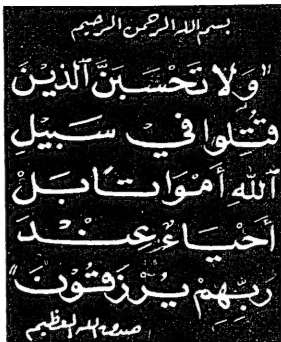 بسم الله الرحمن الرحيم
"وَلَا تَحْسَبَنَّ ٱلَّذِينَ
قُتِلُوا فِي سَبِيلِ
ٱللَّهِ أَمْوَاتًا بَلْ
أَحْيَاءٌ عِنْدَ
رَبِّهِمْ يُرْزَقُونَ"
صدق الله العظيم